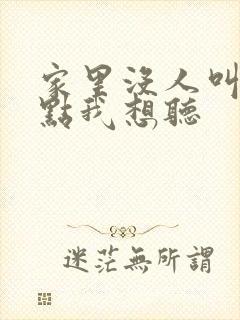 家里沒人叫
點我想聽
迷茫無所謂